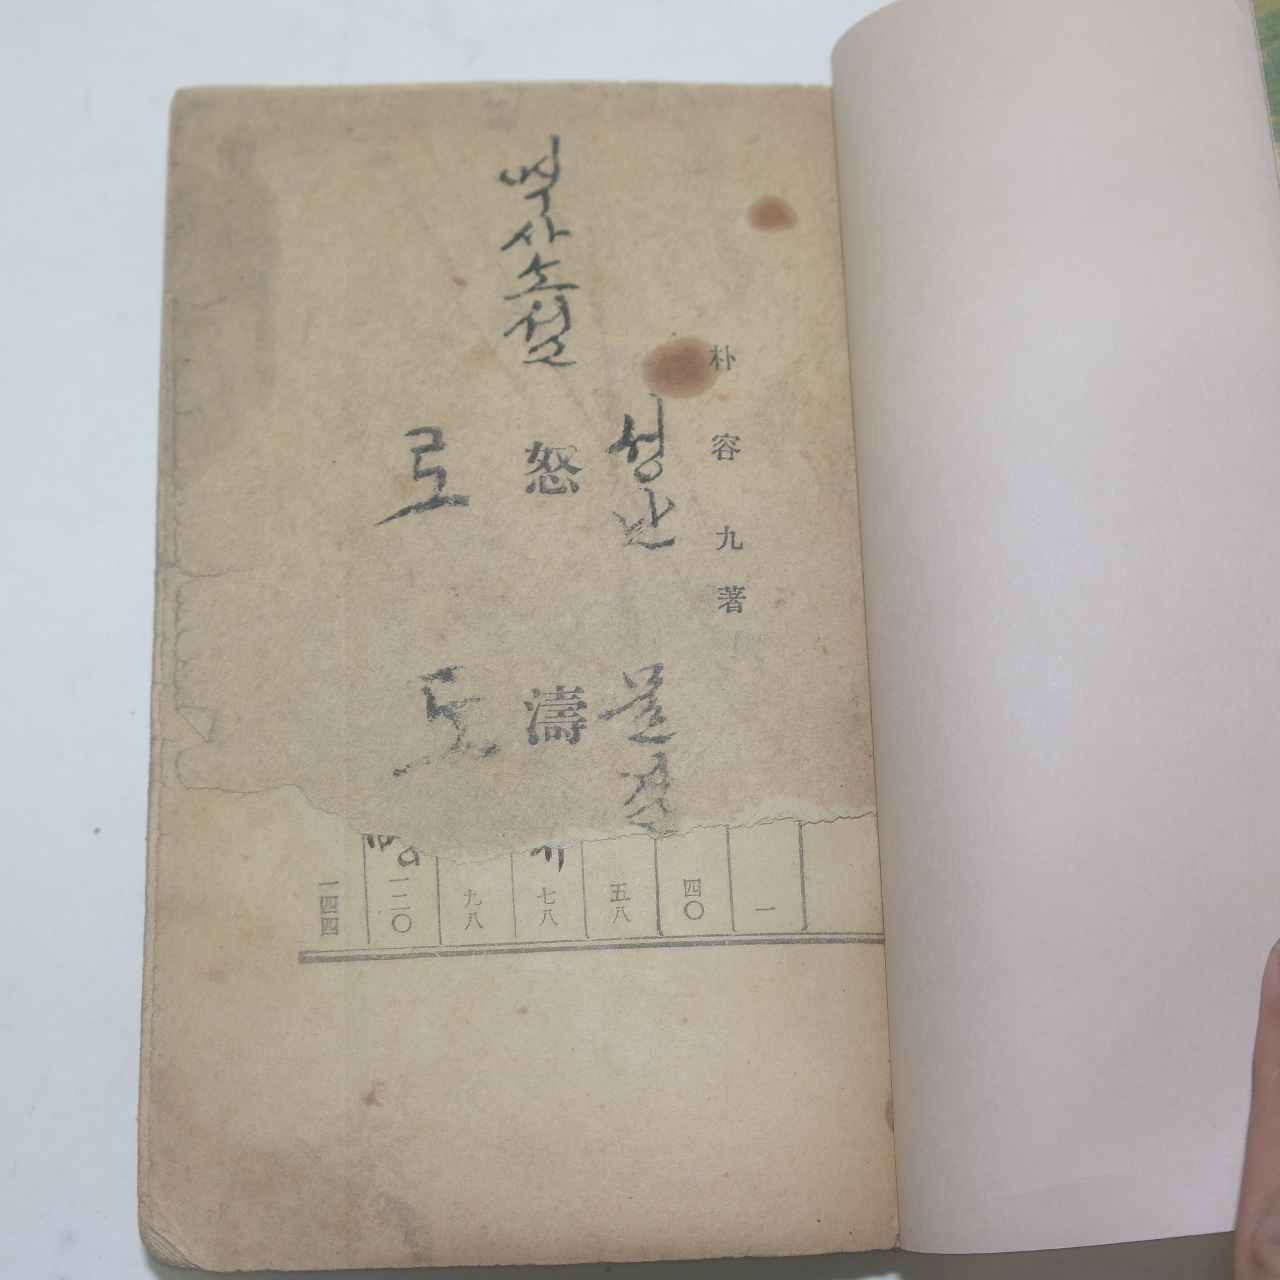 朴容九著
성난 물결
역사소설
怒濤
로 도
一
四〇
五八
七八
九八
一二〇
一四四